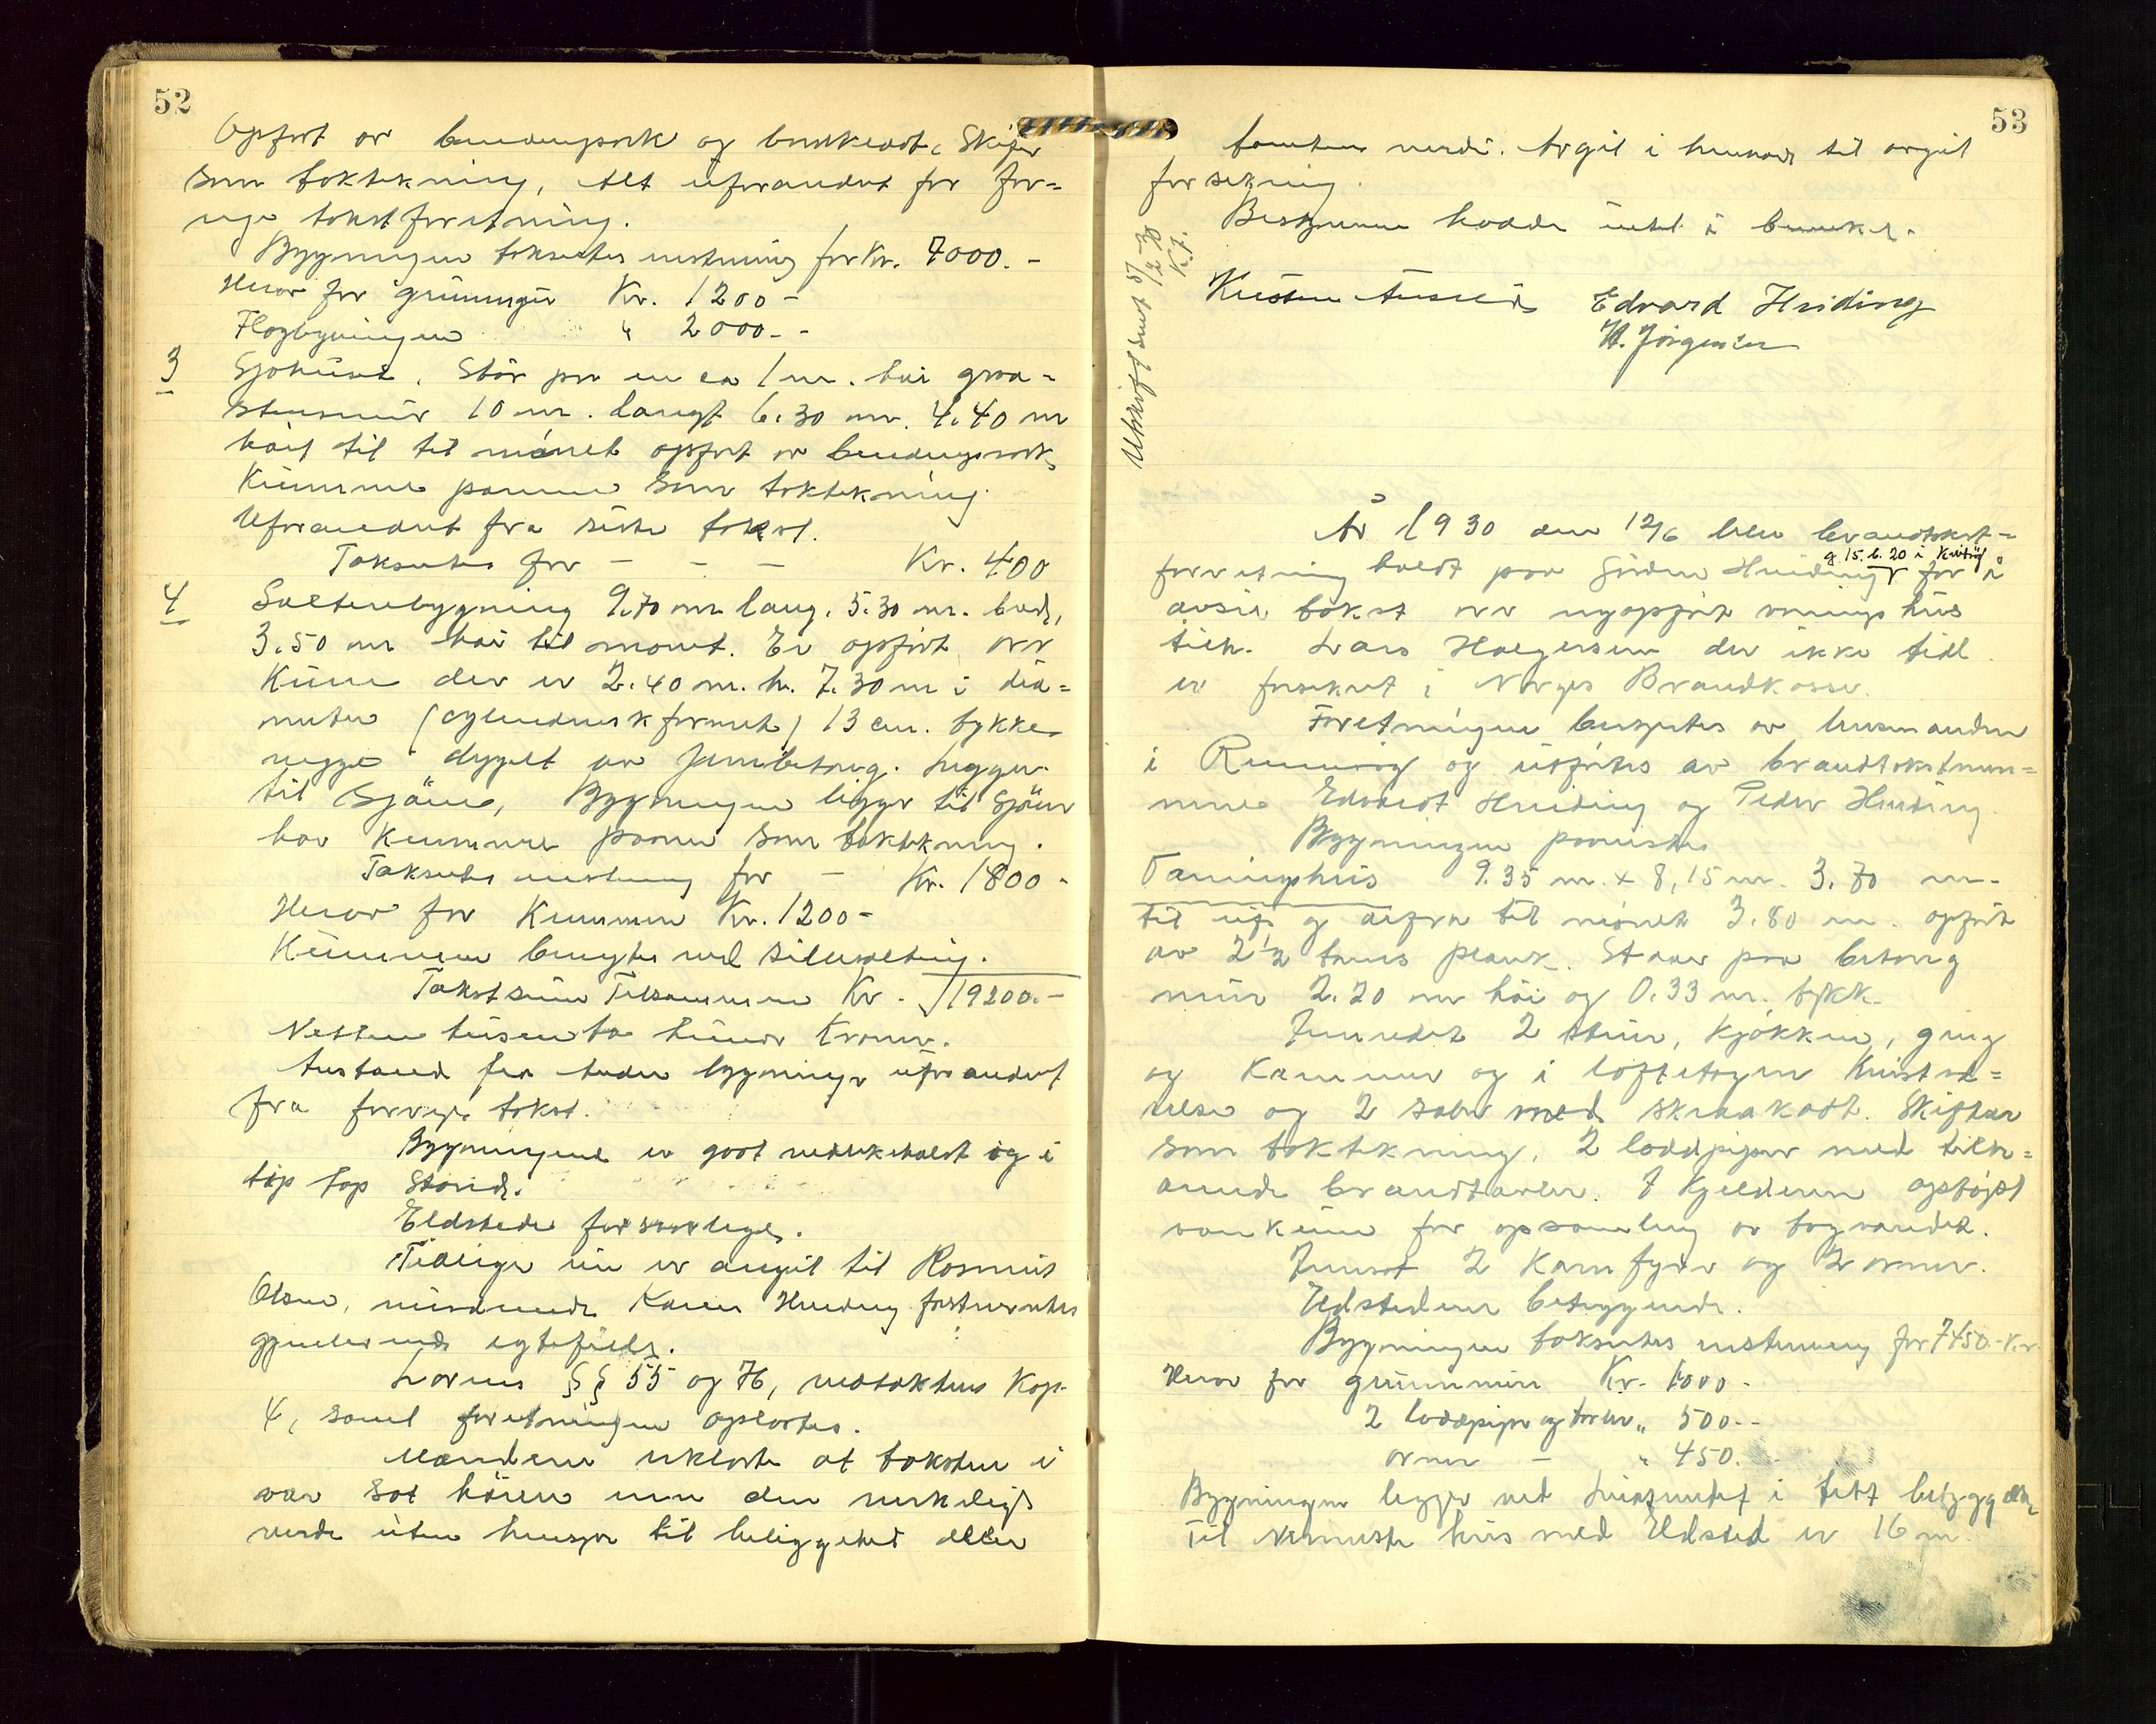 52
Opført av bindingsverk og bordkledt, Skifer
som taktekning, Alt uforandret for for=
rige takstforretning.
Bygningen taksertes enstemmig for Kr. 7000.-
Herav for grunnmur Kr. 1200-
Fløybygningen " 2000.-
3 Sjøhuset. Står på en ca 1 m. høi graa=
stensmur 10 m. langt 6.30 m. 4.40 m
høit til til mønet opført av bindingsverk,
Kummer panne som taktekning.
Uforandret fra siste takst.
Taksertes for - - - Kr. 400
4 Salteribygning 9.70 m lang, 5.30 m. bred,
3.50 m høi til mønet. Er opført over
Kum der er 2.40 m. h. 7.30 m i dia=
meter (cylendrisk formet) 13 cm. tykke
vegge støpt av Jernbetong. Ligger
til Sjøen, Bygningen ligger til Sjøen
har Kummer panne som taktekning.
Taksertes enstemmig for - Kr. 1800-
Herav for Kummen Kr. 1200-
Kummen benyttes ved sildsalting.
Takst sum Tilsammen Kr. 19200.-
Nitten tusen to hundr Kroner.
Avstand fra andre bygninger uforandret
fra forrige takst.
Bygningene er godt vedlikeholdt og i
tip top Stand.
Eldsteder forsvarlige.
Tidligere eier er angit til Rasmus
Olsen, nuværende Karen Hviding fortsættes
gjenlevende egtefælle.
Lovens §§ 55 og 76, vedtektenes Kap.
4, samt forretningen oplæstes.
Mændene erklærte at taksten i
var sat høiere enn den virkelige
verdi uten hensyn til beliggenhet eller
53
tomtens verdi. Avgit i henhold til avgit
forsikring.
Bestyreren hadde intet å bemerke.
Edvard Hviding
H. Jørgensen
Utskrift sendt 5/2-30
K.J.
År 1930 den 12/6 blev brandtakst=
forretning holdt paa Gården Hviding g. 15. b. 20 i Kvitsøy for å
avgi takst over nyopført våningshus
tilh. Lars Helgersen der ikke tidl.
er forsikret i Norges Brandkasse.
Forretningen bestyrtes av lensmanden
i Rennesøy og utførtes av brandtakstmen=
nene Edvardt Hviding og Peder Hviding
Bygningen paavistes
Vaaningshus 9.35 m. x 8,15 m. 3.70 m.
til ufs og derfra til mønet 3.80 m. opført
av 2 1/2 toms plank. Staar paa betong
mur 2.20 m høi og 0.33 m. tykk.
Innredet 2 stuer, kjøkken, gang
og Kammer og i loftetagen Kvistvæ=
relse og 2 saler med skraakott. Skiftær
som taktekning, 2 loddpiper med tilhø=
rende brandtavler. I Kjelderen opstøpt
vankum for opsamling av tagvandet.
Innsat 2 Kamfyrer og 2 ovner.
Eldstedene betryggende.
Bygningen taksertes enstemmig for 7450.-Kr.
Herav for grunnmur Kr. 1000-
2 loddpiper og tavler " 500.-
ovner - " 450.
Bygningen ligger ved i tett bebyggelse
Til Nærmeste hus med Eldsted er 16 m